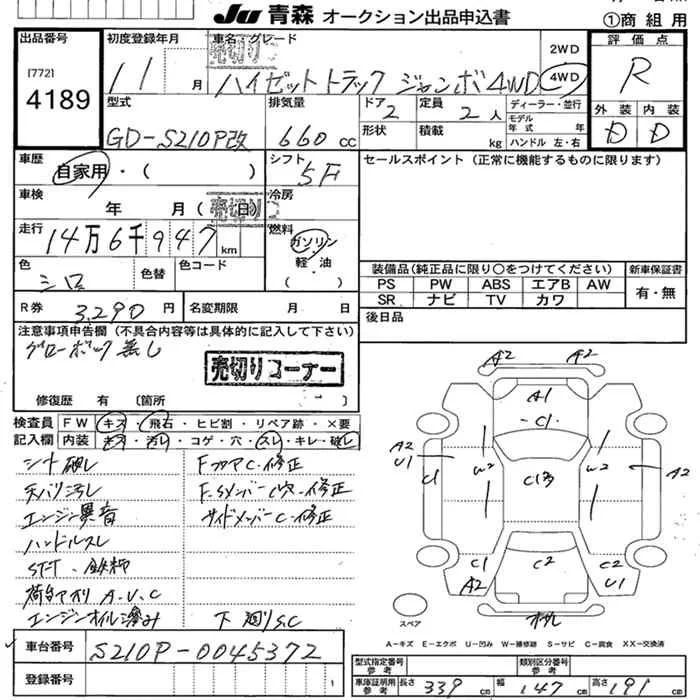 JU 青森 オークション出品申込書
①商組用
出品番号
[772]
4189
初度登録年月
11 月
車名・グレード
売切り
ハイゼットトラック ジャンボ 4WD
2WD
4WD
評価点
R
型式
GD-S210P改
排気量
660 cc
ドア
2
定員
2 人
ディーラー・並行
モデル
年式 年
ハンドル 左・右
形状
積載
kg
外装
内装
D
D
車歴
自家用・( )
シフト
5F
セールスポイント(正常に機能するものに限ります)
車検
年 月( 日)
売切り
冷房
走行
14万6千947 km
燃料
ガソリン
軽・油
( )
色
シロ
色替
色コード
装備品(純正品に限り○をつけてください)
新車保証書
PS PW ABS エアB AW
SR ナビ TV カワ
有・無
R券
3,290 円
名変期限 月 日
後日品
注意事項申告欄(不具合内容等は具体的に記入して下さい)
グローボック無し
売切りコーナー
修復歴 有 〔箇所 〕
検査員
記入欄
FW キズ・飛石・ヒビ割・リペア跡・×要
内装 キズ・汚れ・コゲ・穴・スレ・キレ・破レ
シート破レ
天バリ汚レ
エンジン異音
ハンドルスレ
ST-T、鉄粉
荷台アオリ A.U.C
エンジンオイル滲み
FフロアC・修正
F.SメンバーC穴・修正
サイドメンバーC・修正
下廻りS.C
A2
A2
A1
C1
A2
U1
C1
W2
C13
W2
A2
C1
A2
C2
C2
U1
スペア
A－キズ E－エクボ U－凹み W－補修跡 S－サビ C－腐食 XX－交換済
車台番号
S210P-0045372
登録番号
型式指定番号
参考
類別区分番号
参考
車庫証明用
参考
長さ 339 cm
幅 147 cm
高さ 191 cm